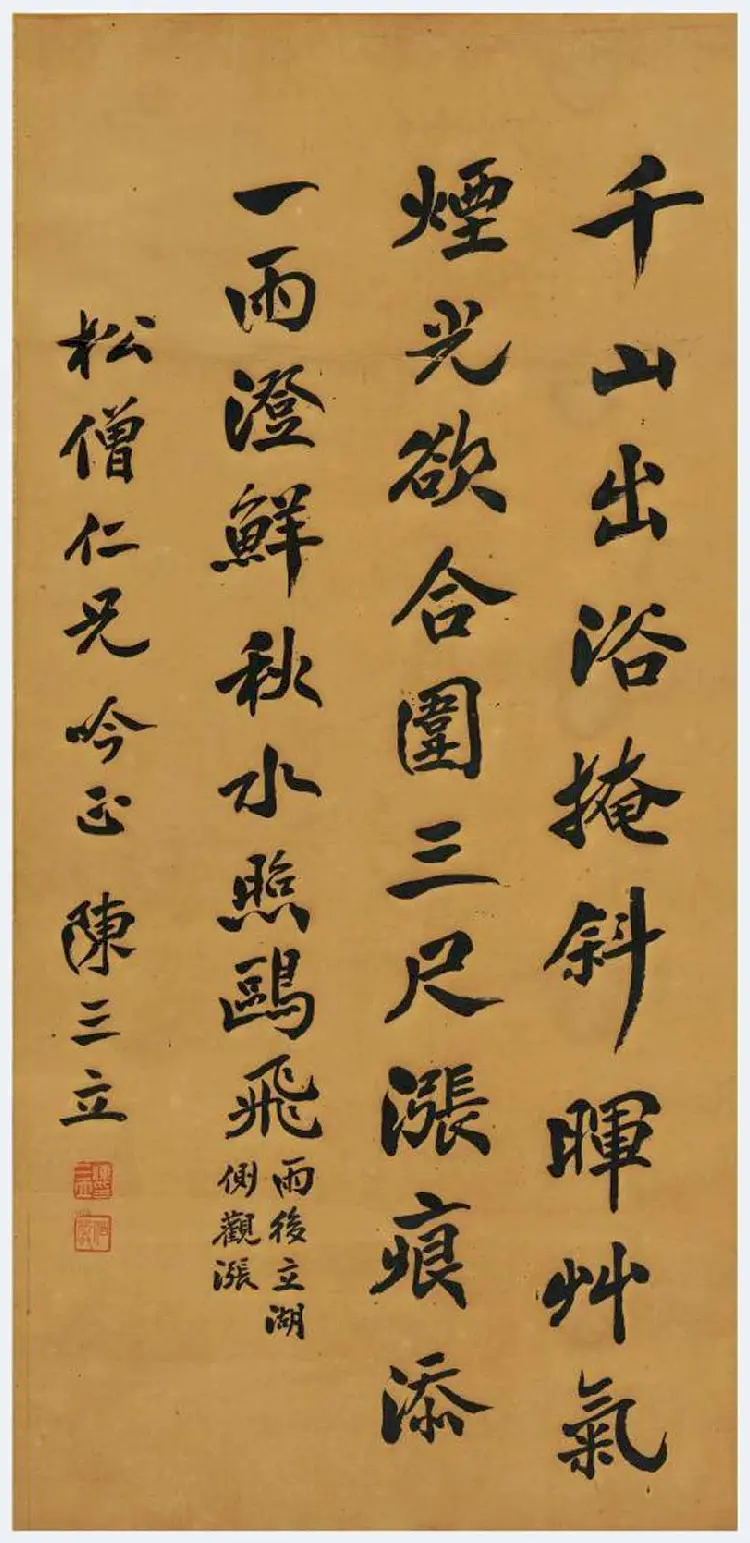 千山出浴掩斜暉艸氣
煙光欲合圍三尺漲痕添
一雨澄鮮秋水照鷗飛
雨後立湖
側觀漲
松僧仁兄吟正 陳三立